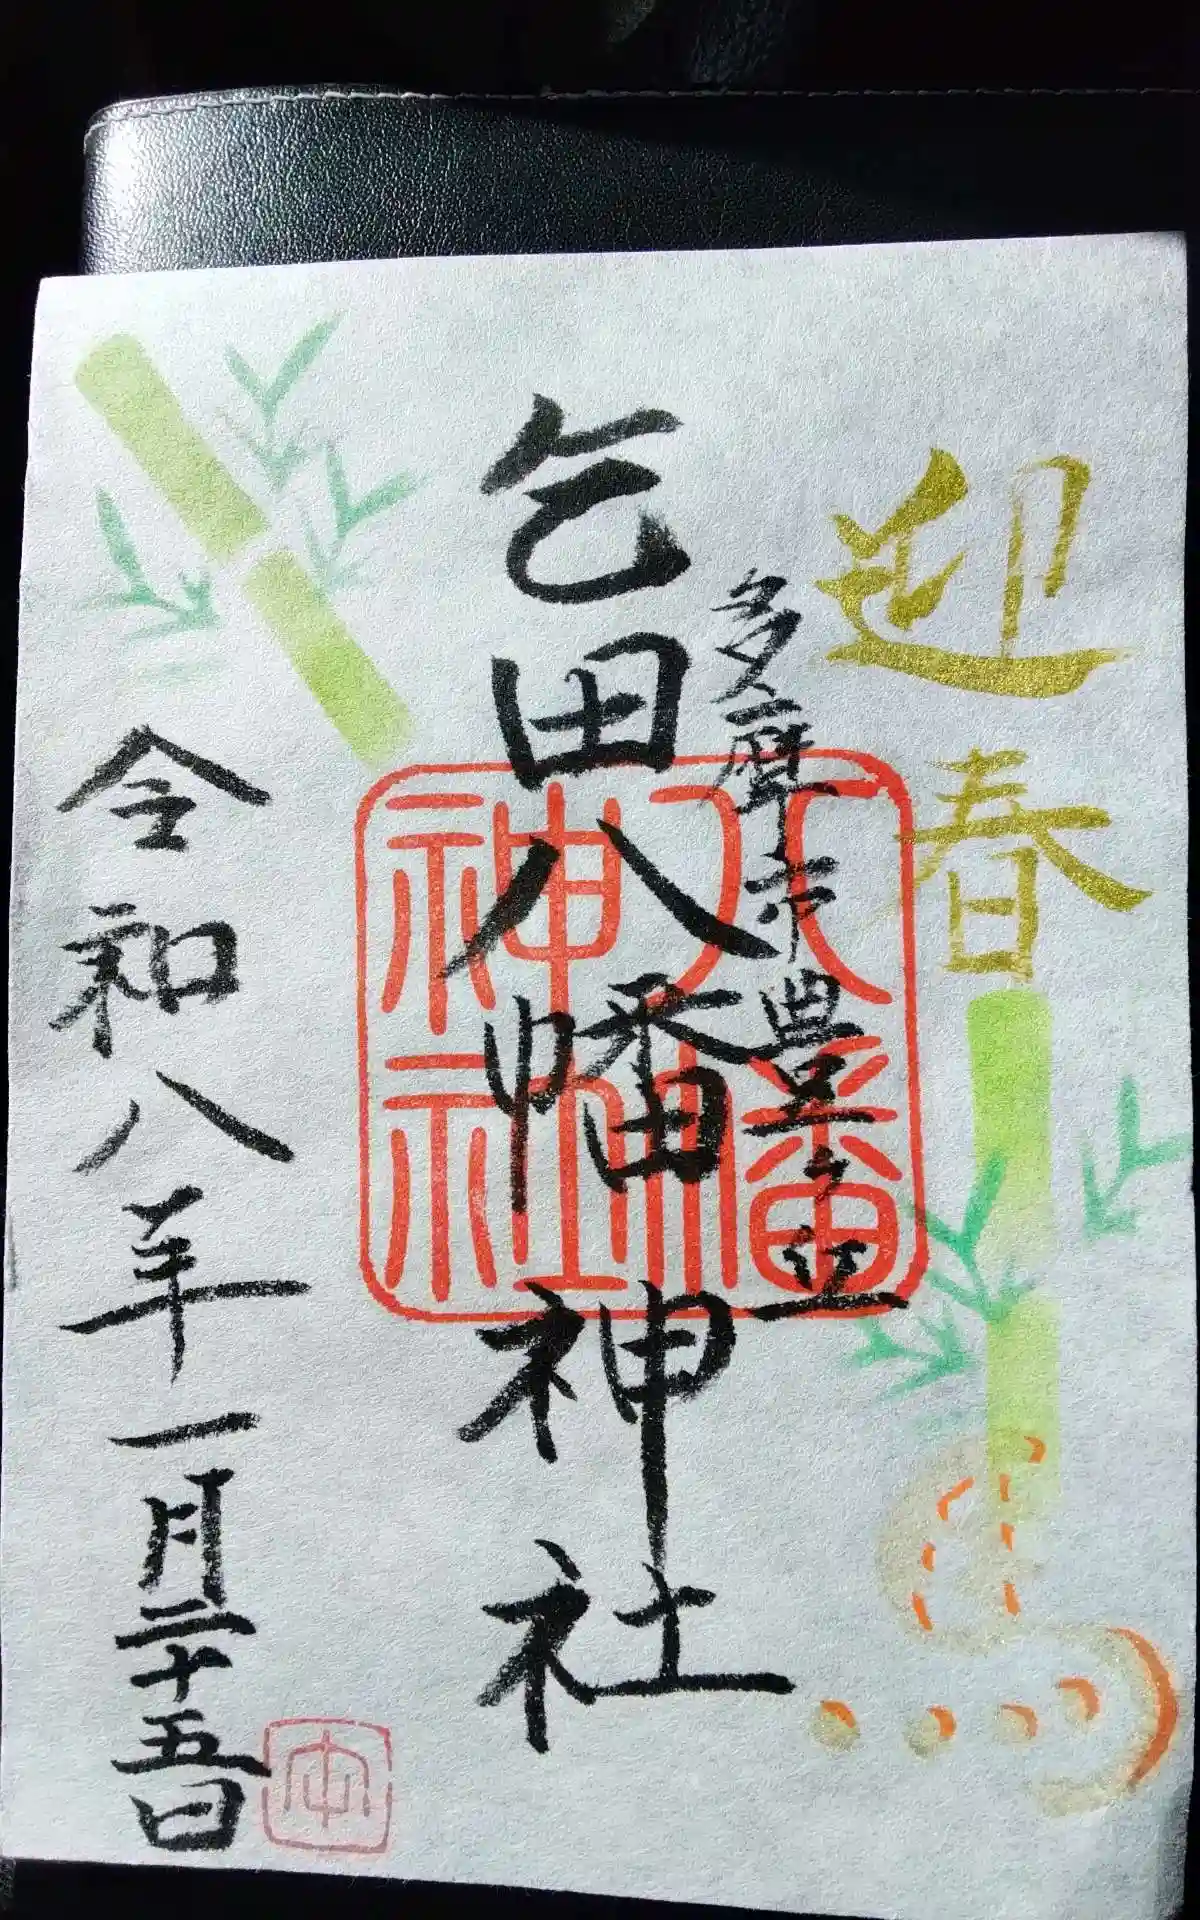 迎春
多摩市豊ヶ丘
乞田八幡神社
八幡
神社
令和八年一月二十五日